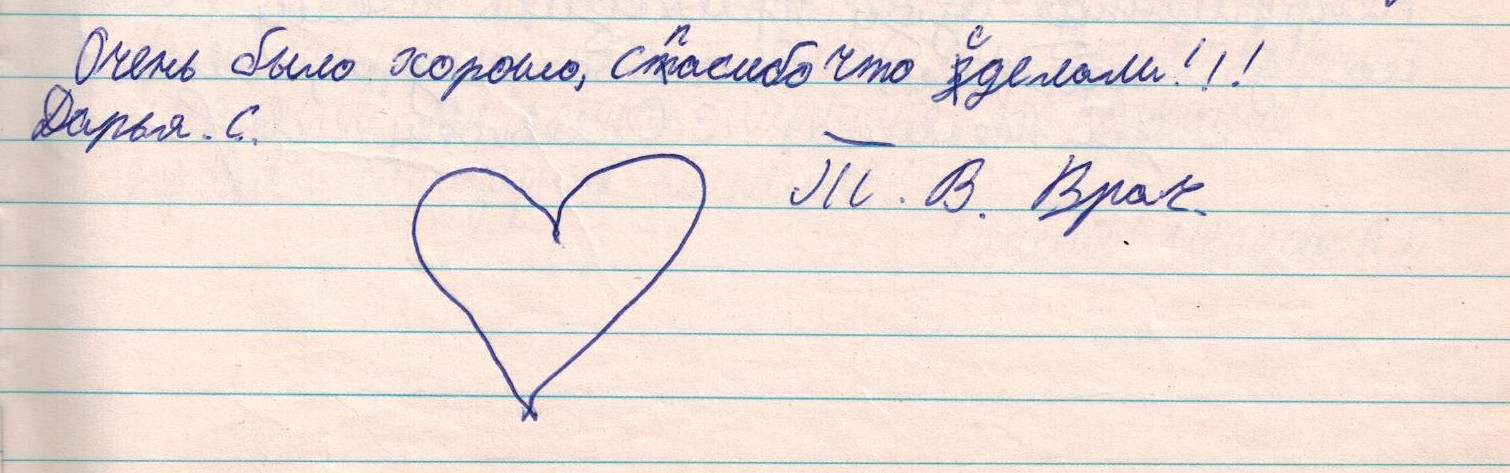 Очень было хорошо, спасибо что сделали!!!
Дарья. С.
Т. В. Врач.